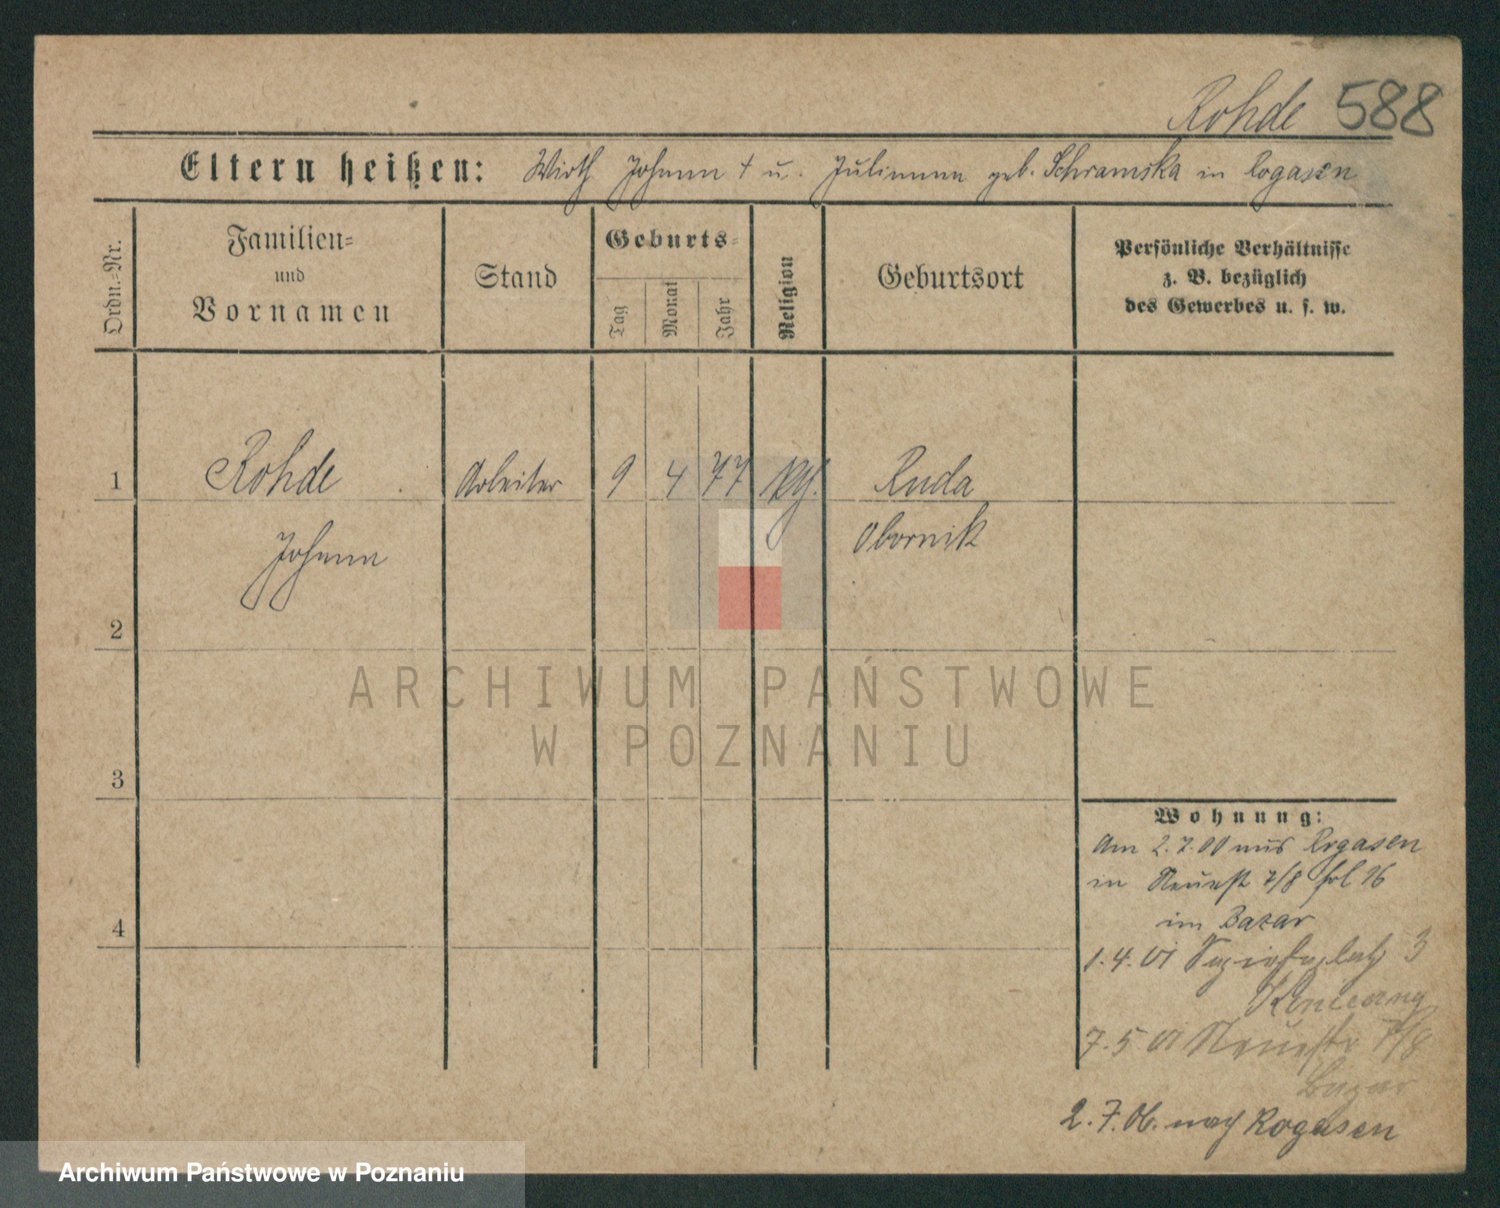 Rohde 588
Eltern heißen: Wirth Johann † u. Julianna geb. Schramska in Rogasen
Ordn.-Nr.
Familien-
und
Vornamen
Stand
Geburts-
Tag
Monat
Jahr
Religion
Geburtsort
Persönliche Verhältnisse
z. B. bezüglich
des Gewerbes u. s. w.
1 Rohde Arbeiter 9 4 77 Ruda
Johann Obornik
2
3
4
Wohnung:
Am 2.7.00 aus Rogasen
in Neuestr 7/8 16
im Bazar
1.4.01 3
7.5 01 Neuestr 7/8
Bazar
2.7.06. nach Rogasen
ARCHIWUM PAŃSTWOWE
W POZNANIU
Archiwum Państwowe w Poznaniu